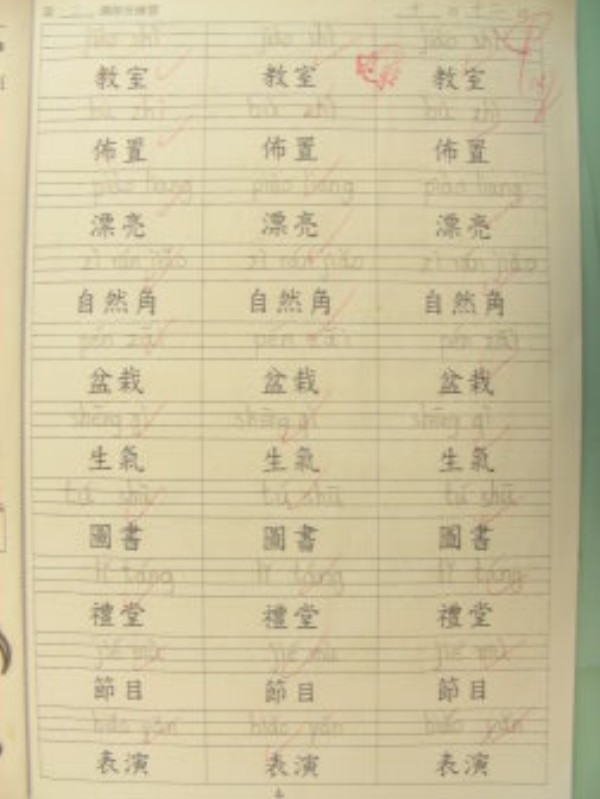 jiào shì jiào shì jiào shì
教室 教室 教室
bù zhì bù zhì bù zhì
佈置 佈置 佈置
piào liang piào liang piào liang
漂亮 漂亮 漂亮
zì rán jiǎo zì rán jiǎo zì rán jiǎo
自然角 自然角 自然角
pén zāi pén zāi pén zāi
盆栽 盆栽 盆栽
shēng qì shēng qì shēng qì
生氣 生氣 生氣
tú shū tú shū tú shū
圖書 圖書 圖書
lǐ táng lǐ táng lǐ táng
禮堂 禮堂 禮堂
jié mù jié mù jié mù
節目 節目 節目
biǎo yǎn biǎo yǎn biǎo yǎn
表演 表演 表演